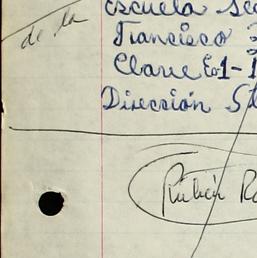 de la
Escuela Sec
Francisco
Clave Es1-1
Dirección St
Rubén Ro